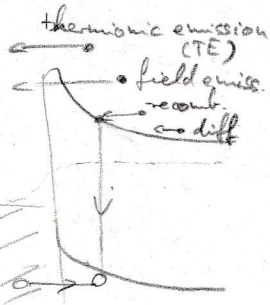 thermionic emission
(TE)
field emiss.
recomb.
diff